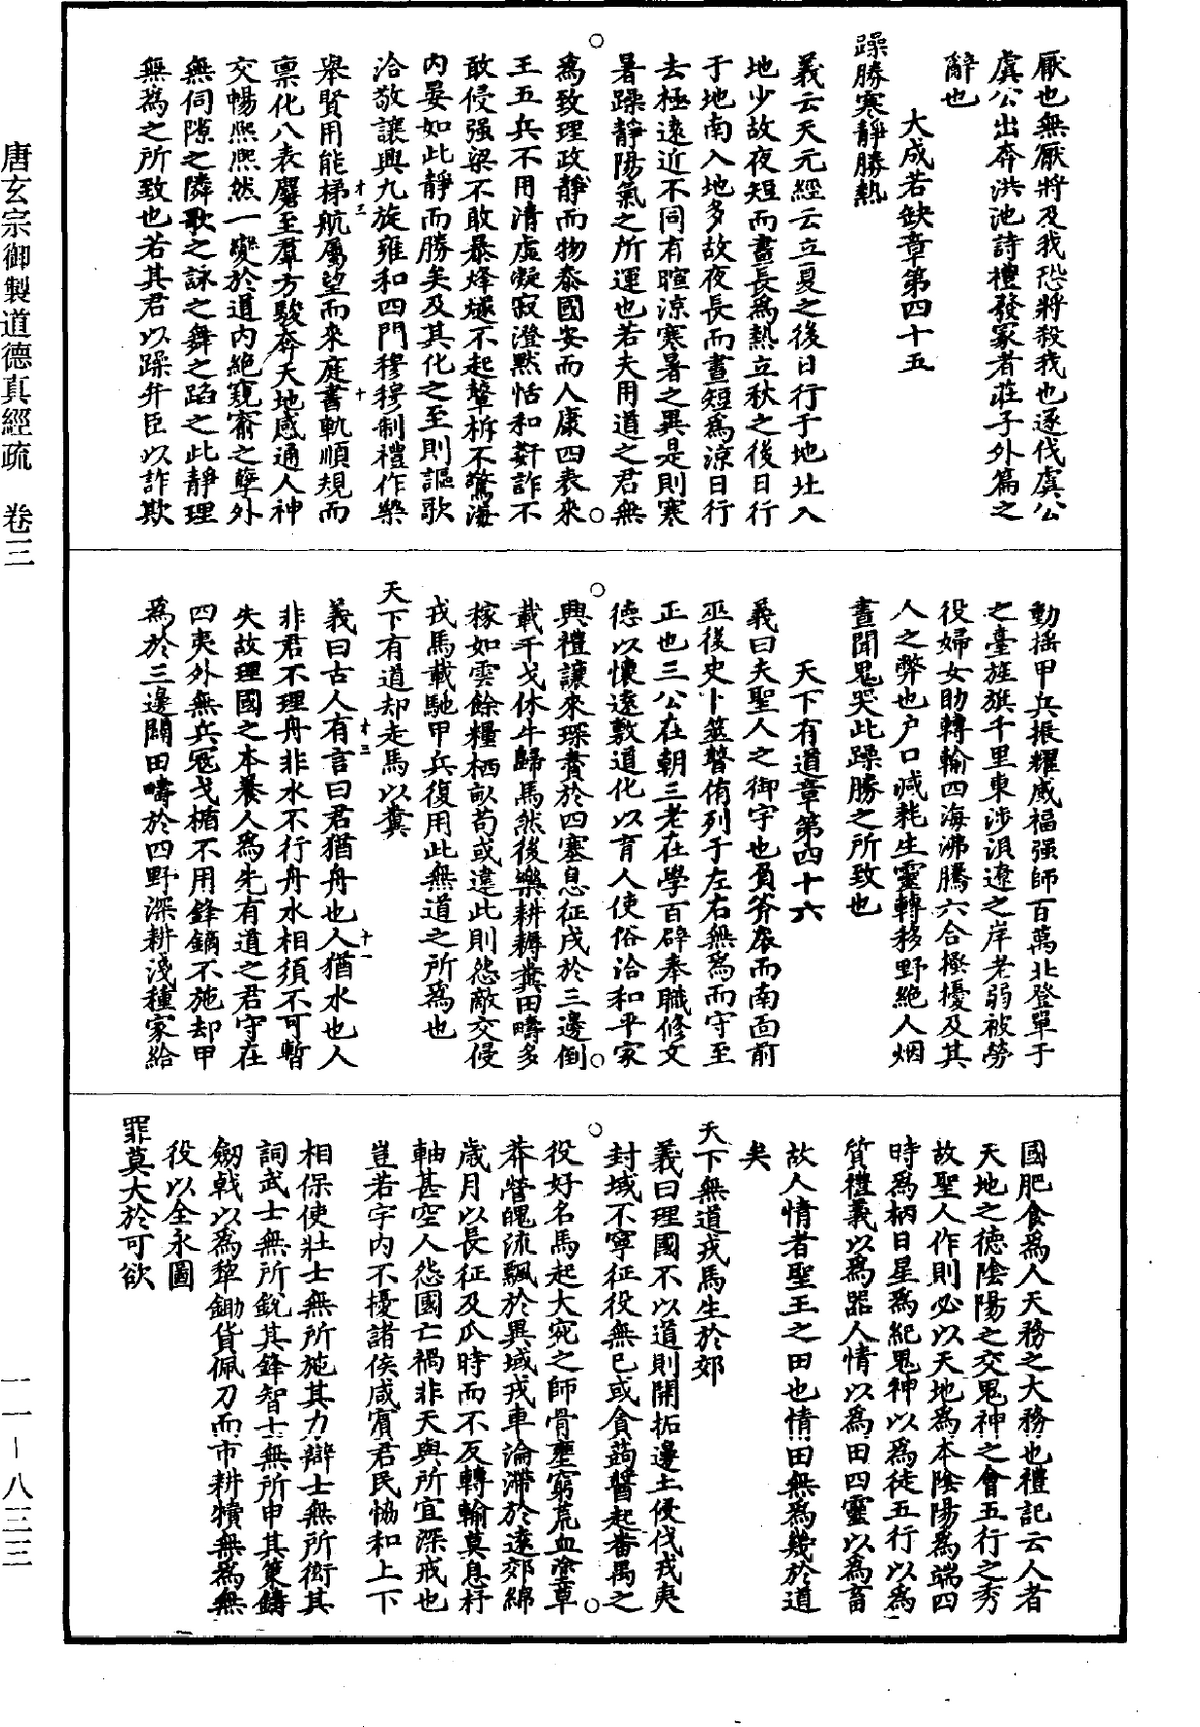 厭也無厭將及我恐將殺我也遂伐虞公
虞公出奔洪池詩禮發冢者莊子外篇之
辭也
大成若缺章第四十五
躁勝寒靜勝熱
義云天元經云立夏之後日行于地北入
地少故夜短而晝長為熱立秋之後日行
于地南入地多故夜長而晝短為涼日行
去極遠近不同有暄涼寒暑之異是則寒
暑躁靜陽氣之所運也若夫用道之君無
為致理政靜而物泰國安而人康四表來
王五兵不用清虛凝寂澄默恬和姧詐不
敢侵强梁不敢暴烽燧不起鼙柝不驚海
内晏如此靜而勝矣及其化之至則謳歌
洽敬讓興九旋雍和四門穆穆制禮作樂
舉賢用能梯航屬望而來庭書軌順規而
禀化八表麕至羣方駿奔天地感通人神
交暢熙熙然一變於道内絶窺窬之孽外
無伺隙之隣歌之詠之舞之蹈之此靜理
無為之所致也若其君以躁弁臣以詐欺
動搖甲兵振耀威福强師百萬北登單于
之臺旌旗千里東涉浿遼之岸老弱被勞
役婦女助轉輸四海沸騰六合搔擾及其
人之弊也户口減耗生靈轉移野絶人烟
晝聞鬼哭此躁勝之所致也
天下有道章第四十六
義曰夫聖人之御宇也負斧扆而南面前
巫後史卜筮瞽侑列于左右無為而守至
正也三公在朝三老在學百辟奉職修文
德以懷遠敷道化以育人使俗洽和平家
興禮讓來琛賮於四塞息征戍於三邊倒
載干戈休牛歸馬然後樂耕耨糞田疇多
稼如雲餘糧栖畝苟或違此則怨敵交侵
戎馬載馳甲兵復用此無道之所為也
天下有道却走馬以糞
義曰古人有言曰君猶舟也人猶水也人
非君不理舟非水不行舟水相須不可暫
失故理國之本養人為先有道之君守在
四夷外無兵寇戈楯不用鋒鏑不施却甲
馬於三邊闢田疇於四野深耕淺種家給
國肥食為人天務之大務也禮記云人者
天地之德陰陽之交鬼神之會五行之秀
故聖人作則必以天地為本陰陽為端四
時為柄日星為紀鬼神以為徒五行以為
質禮義以為器人情以為田四靈以為畜
故人情者聖王之田也情田無為幾於道
矣
天下無道戎馬生於郊
義曰理國不以道則開拓邊土侵伐戎夷
封域不寧征役無已或貪蒟醬起番禺之
役好名馬起大宛之師骨壅窮荒血塗草
莽營魄流飄於異域戎車淪滯於遠郊綿
歲月以長征及瓜時而不反轉輸莫息杼
軸甚空人怨國亡禍非天與所宜深戒也
豈若宇内不擾諸侯咸賓君民恊和上下
相保使壯士無所施其力辯士無所衒其
詞武士無所銳其鋒智士無所申其策鑄
劒戟以為犂鋤貨佩刀而市耕犢無為無
役以全永圖
罪莫大於可欲
唐玄宗御製道德真經疏　卷三
一一－八三三